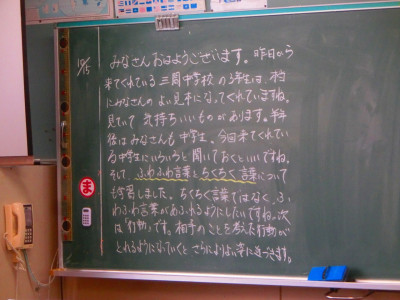 10/15
みなさんおはようございます。昨日から
来てくれている三関中学校の3年生は、本当
にみなさんのよい見本になってくれていますね。
見ていて気持ちいいものがあります。半年
後はみなさんも中学生。今回来てくれてい
る中学生にいろいろと聞いておくといいですね。
そして、ふわふわ言葉とちくちく言葉について
も学習しました。ちくちく言葉ではなく、ふ
わふわ言葉があふれるようにしたいですね。次
は「行動」です。相手のことを考えた行動が
とれるようになっていくとさらによりよい姿に近づきます。
ま